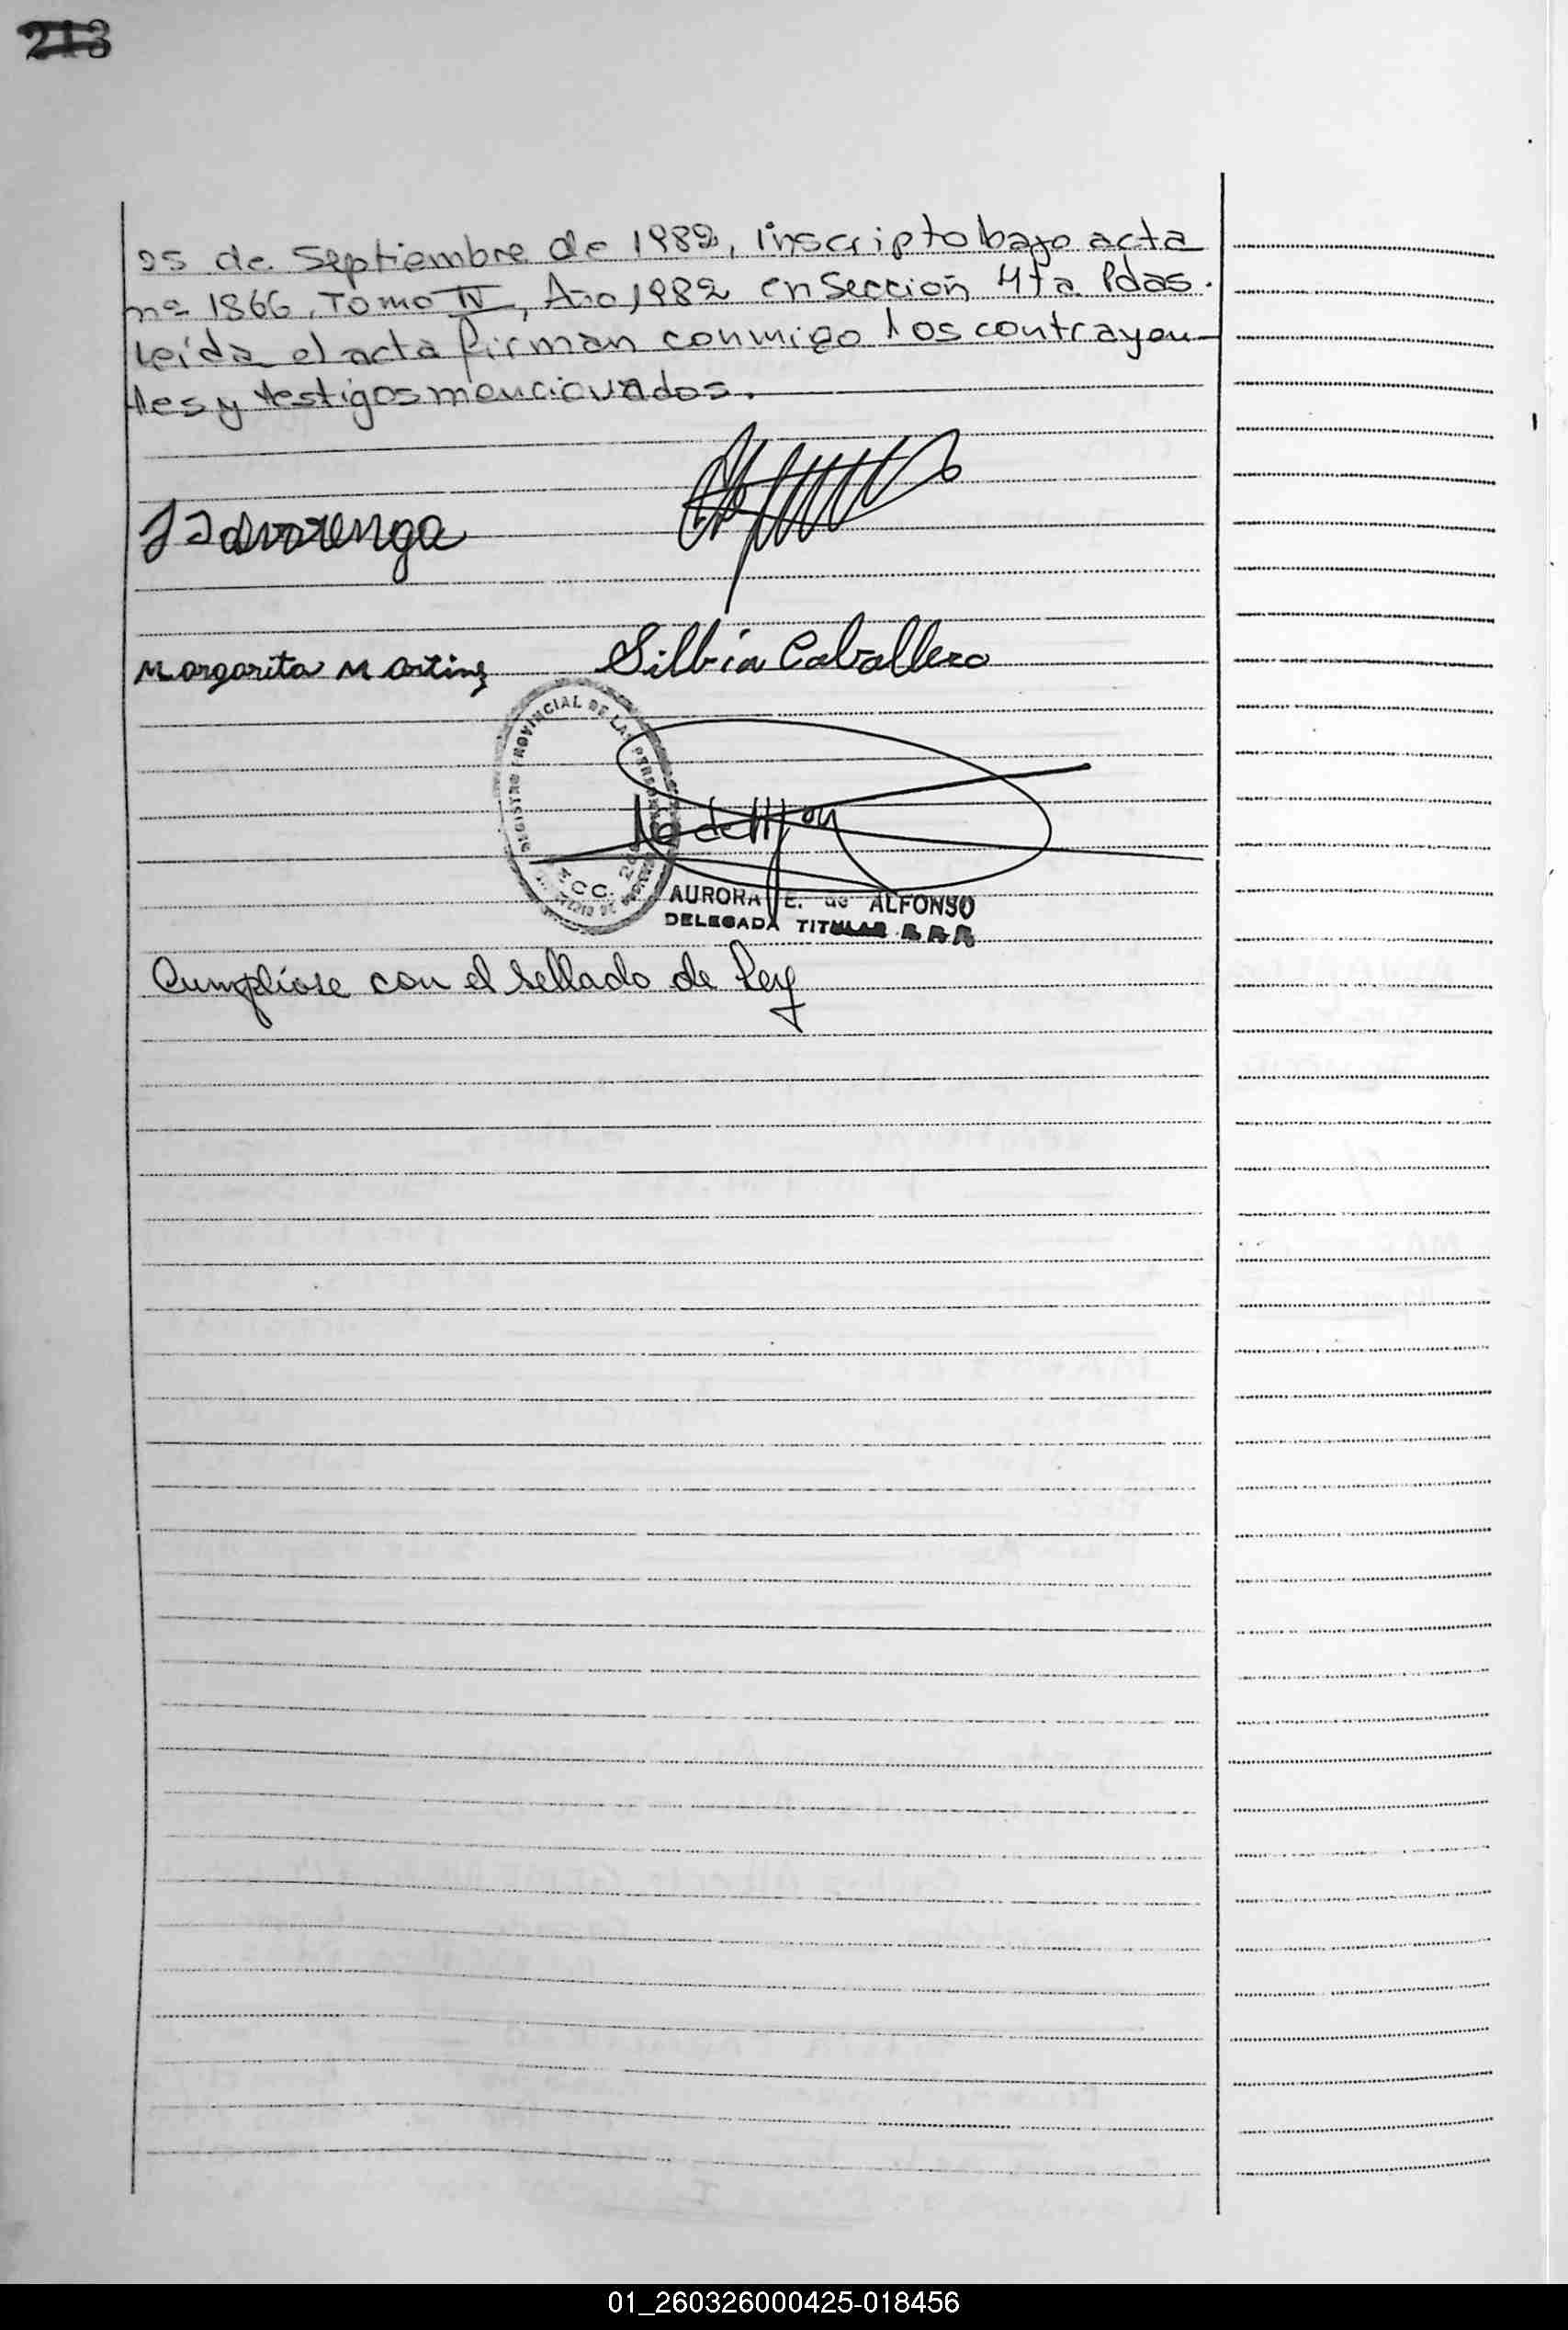 213
25 de Septiembre de 1982, Inscripto bajo acta
nº 1866, Tomo IV, Año 1982 en Sección 4ta Pdas.
Leída el acta firman conmigo los contrayen-
tes y testigos mencionados.
Margarita Martinez
Silbia Caballero
REGISTRO PROVINCIAL DE LAS PERSONAS
SECC.
AURORA E. de ALFONSO
DELEGADA TITULAR
Cumplíose con el sellado de ley
01_260326000425-018456